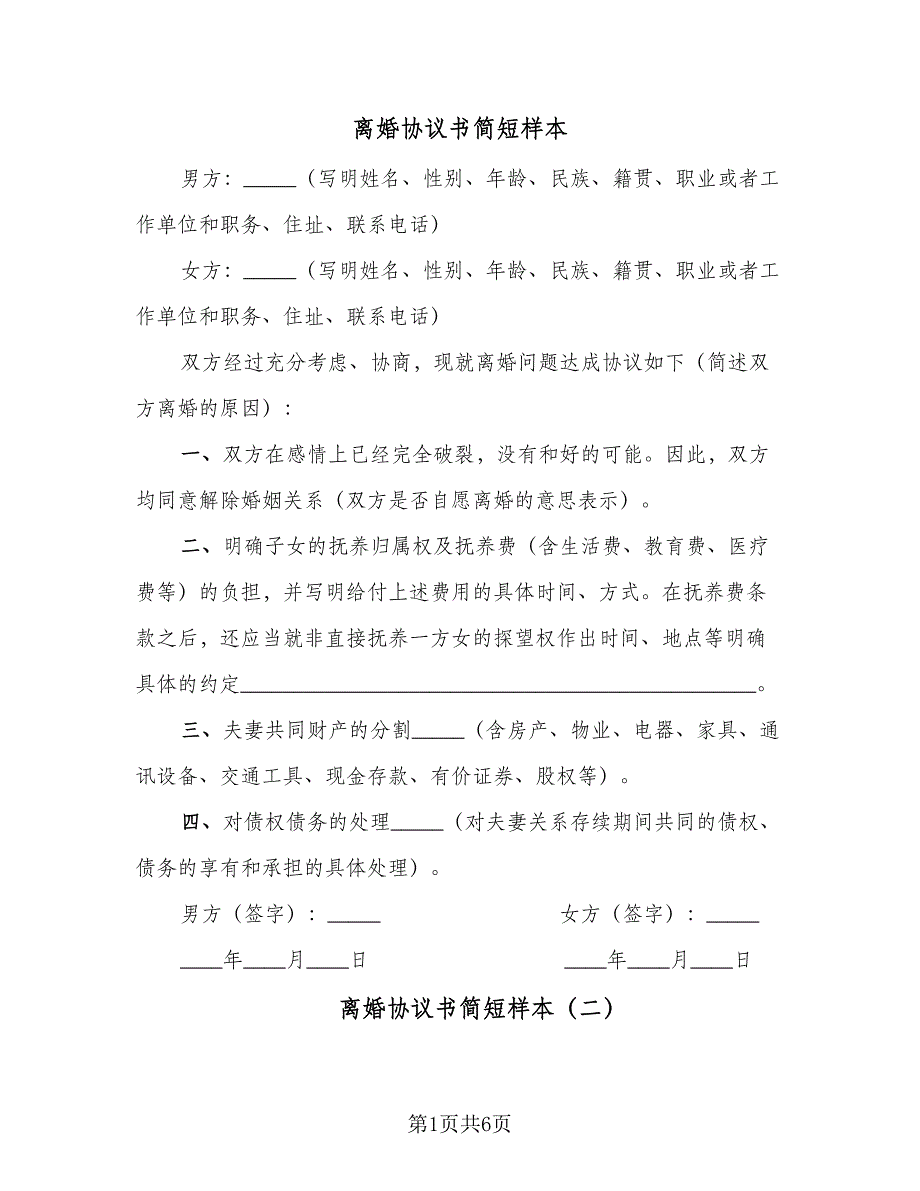 离婚协议书简短样本
男方：_____（写明姓名、性别、年龄、民族、籍贯、职业或者工
作单位和职务、住址、联系电话）
女方：_____（写明姓名、性别、年龄、民族、籍贯、职业或者工
作单位和职务、住址、联系电话）
双方经过充分考虑、协商，现就离婚问题达成协议如下（简述双
方离婚的原因）：
一、双方在感情上已经完全破裂，没有和好的可能。因此，双方
均同意解除婚姻关系（双方是否自愿离婚的意思表示）。
二、明确子女的抚养归属权及抚养费（含生活费、教育费、医疗
费等）的负担，并写明给付上述费用的具体时间、方式。在抚养费条
款之后，还应当就非直接抚养一方女的探望权作出时间、地点等明确
具体的约定_________________________________________________。
三、夫妻共同财产的分割_____（含房产、物业、电器、家具、通
讯设备、交通工具、现金存款、有价证券、股权等）。
四、对债权债务的处理_____（对夫妻关系存续期间共同的债权、
债务的享有和承担的具体处理）。
男方（签字）：_____ 女方（签字）：_____
____年____月____日 ____年____月____日
离婚协议书简短样本（二）
第1页共6页